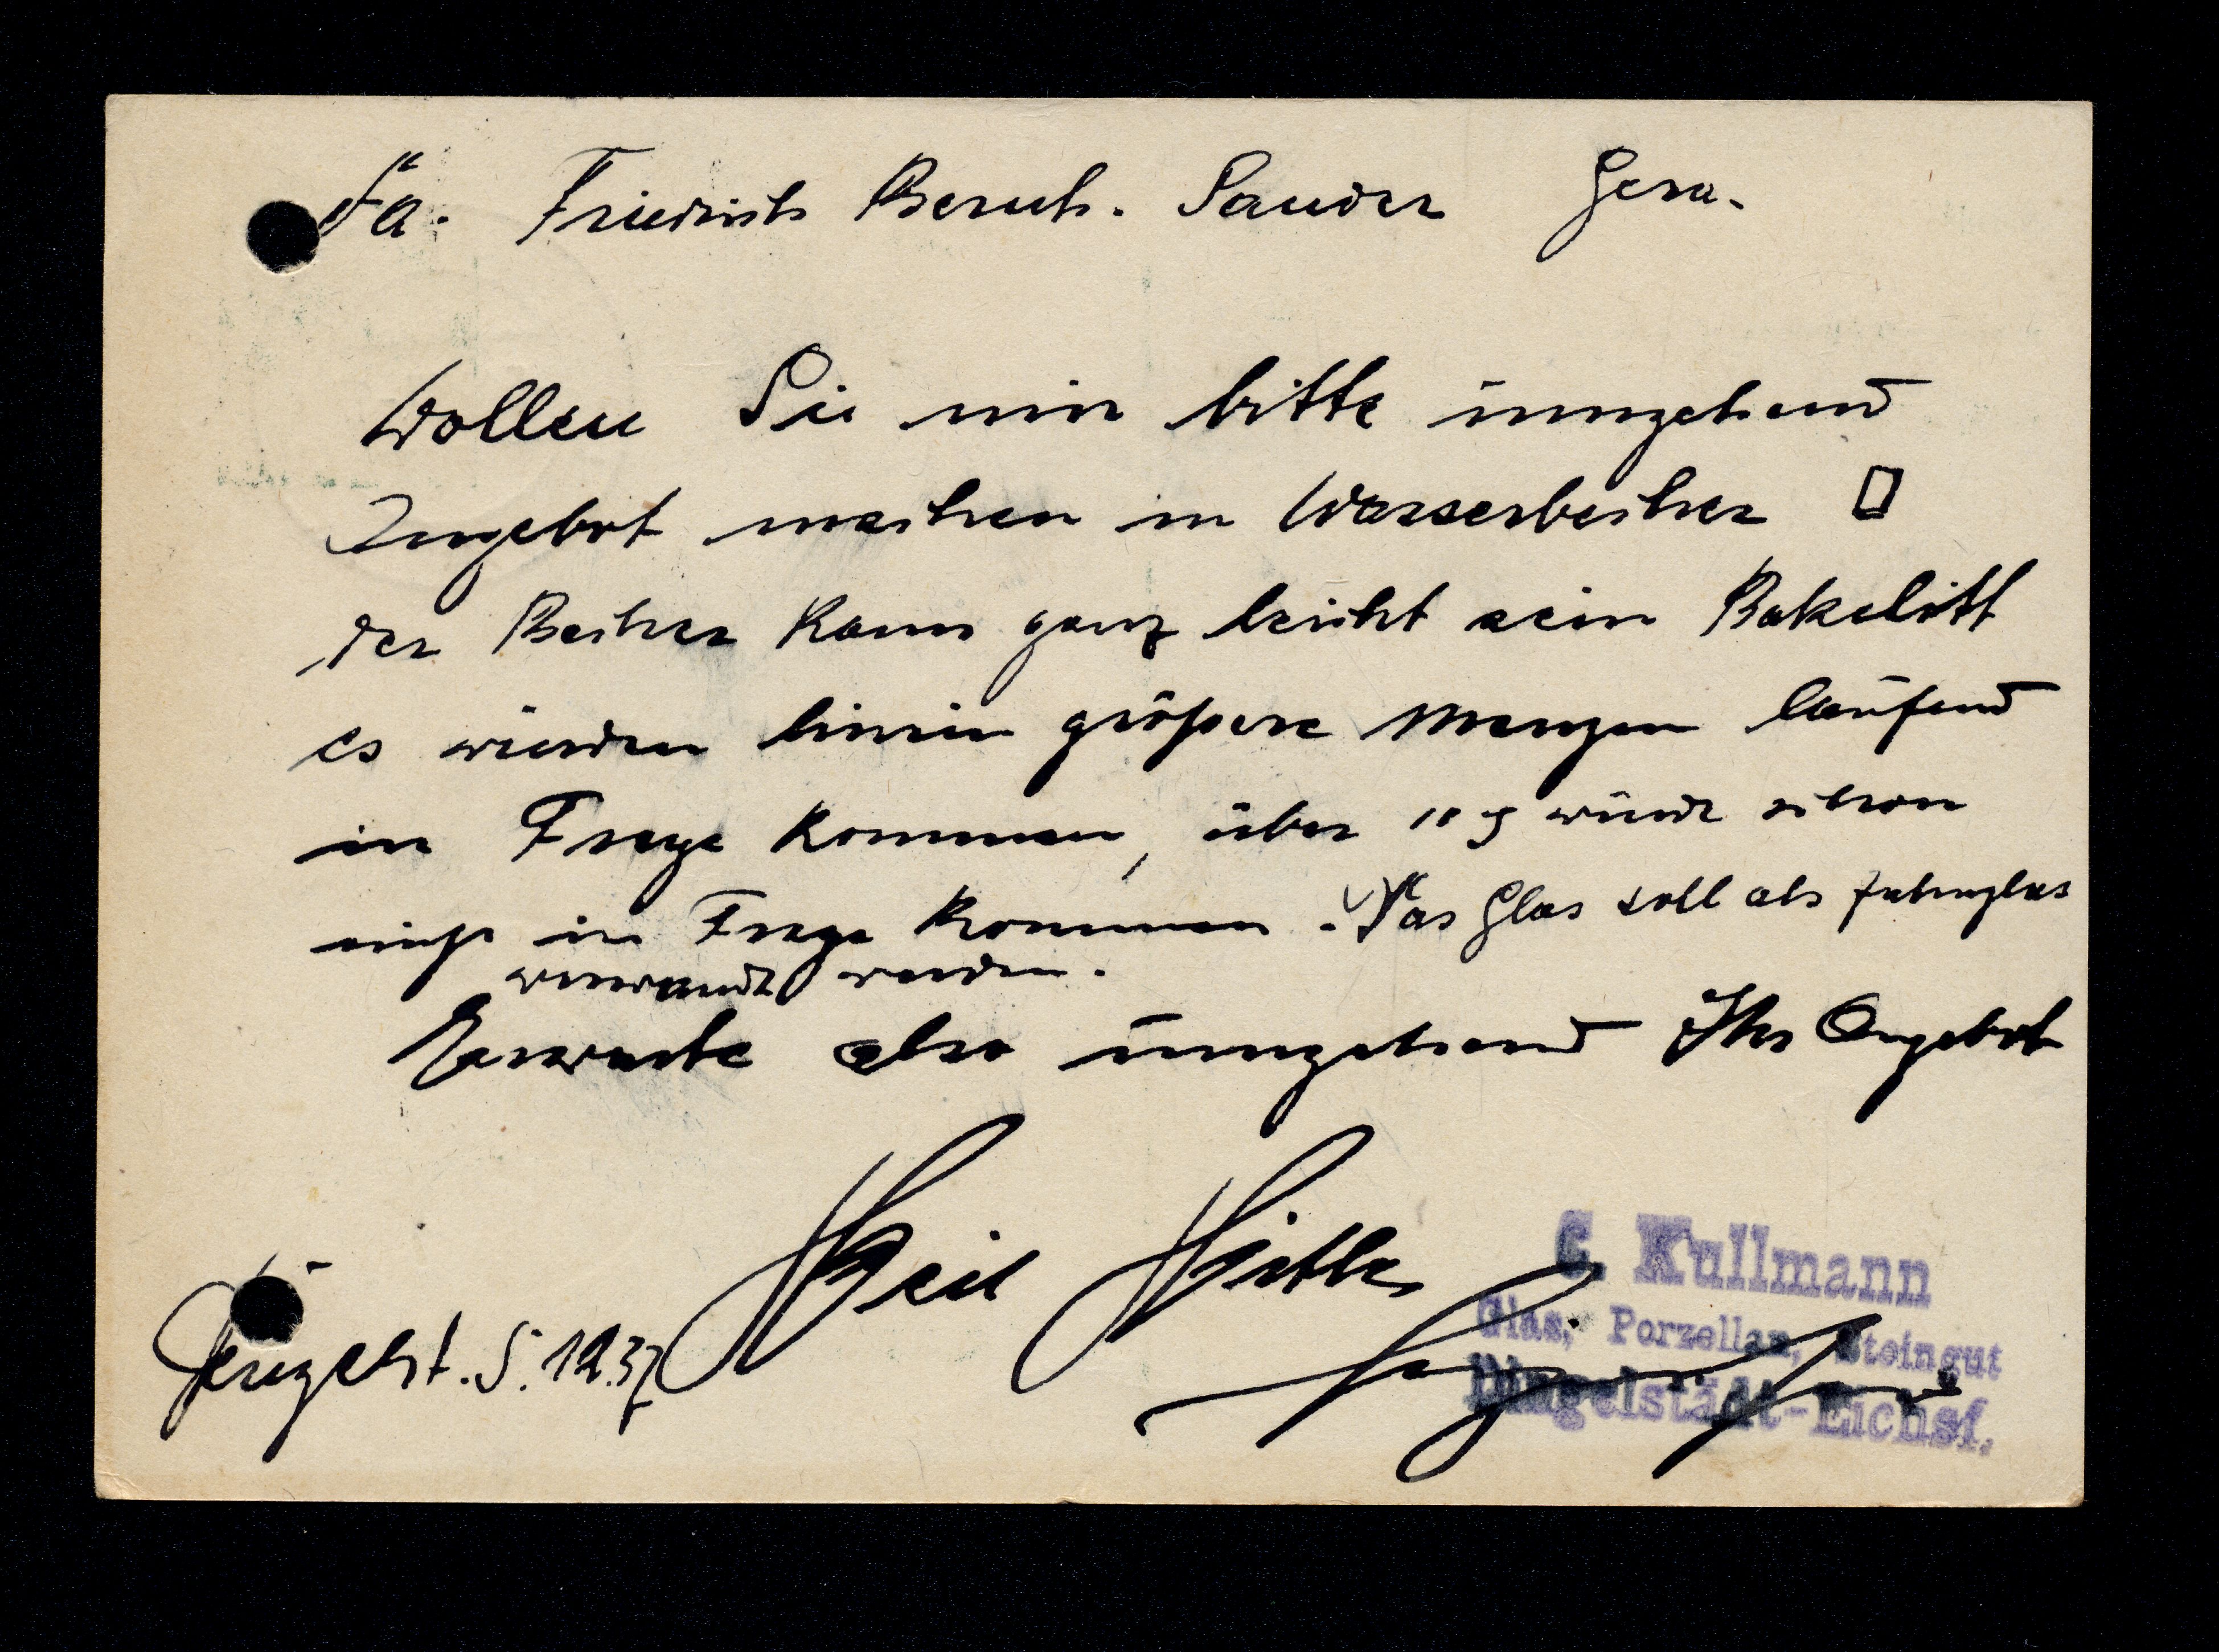 Fa. Friedrich Bernh. Sander Gera.
Wollen Sie mir bitte umgehend
Angebot machen in Wasserbecher
der Becher kann ganz leicht sein Bakelitt
es würden hierin größere Mengen laufend
in Frage kommen, über würde schon
in Frage kommen. Das Glas soll als
verwandt werden.
Erwarte also umgehend Ihr Angebot
Heil Hitler
C. Kullmann
Glas, Porzellan, Steingut
Dingelstädt-Eichsf.
5.12.37